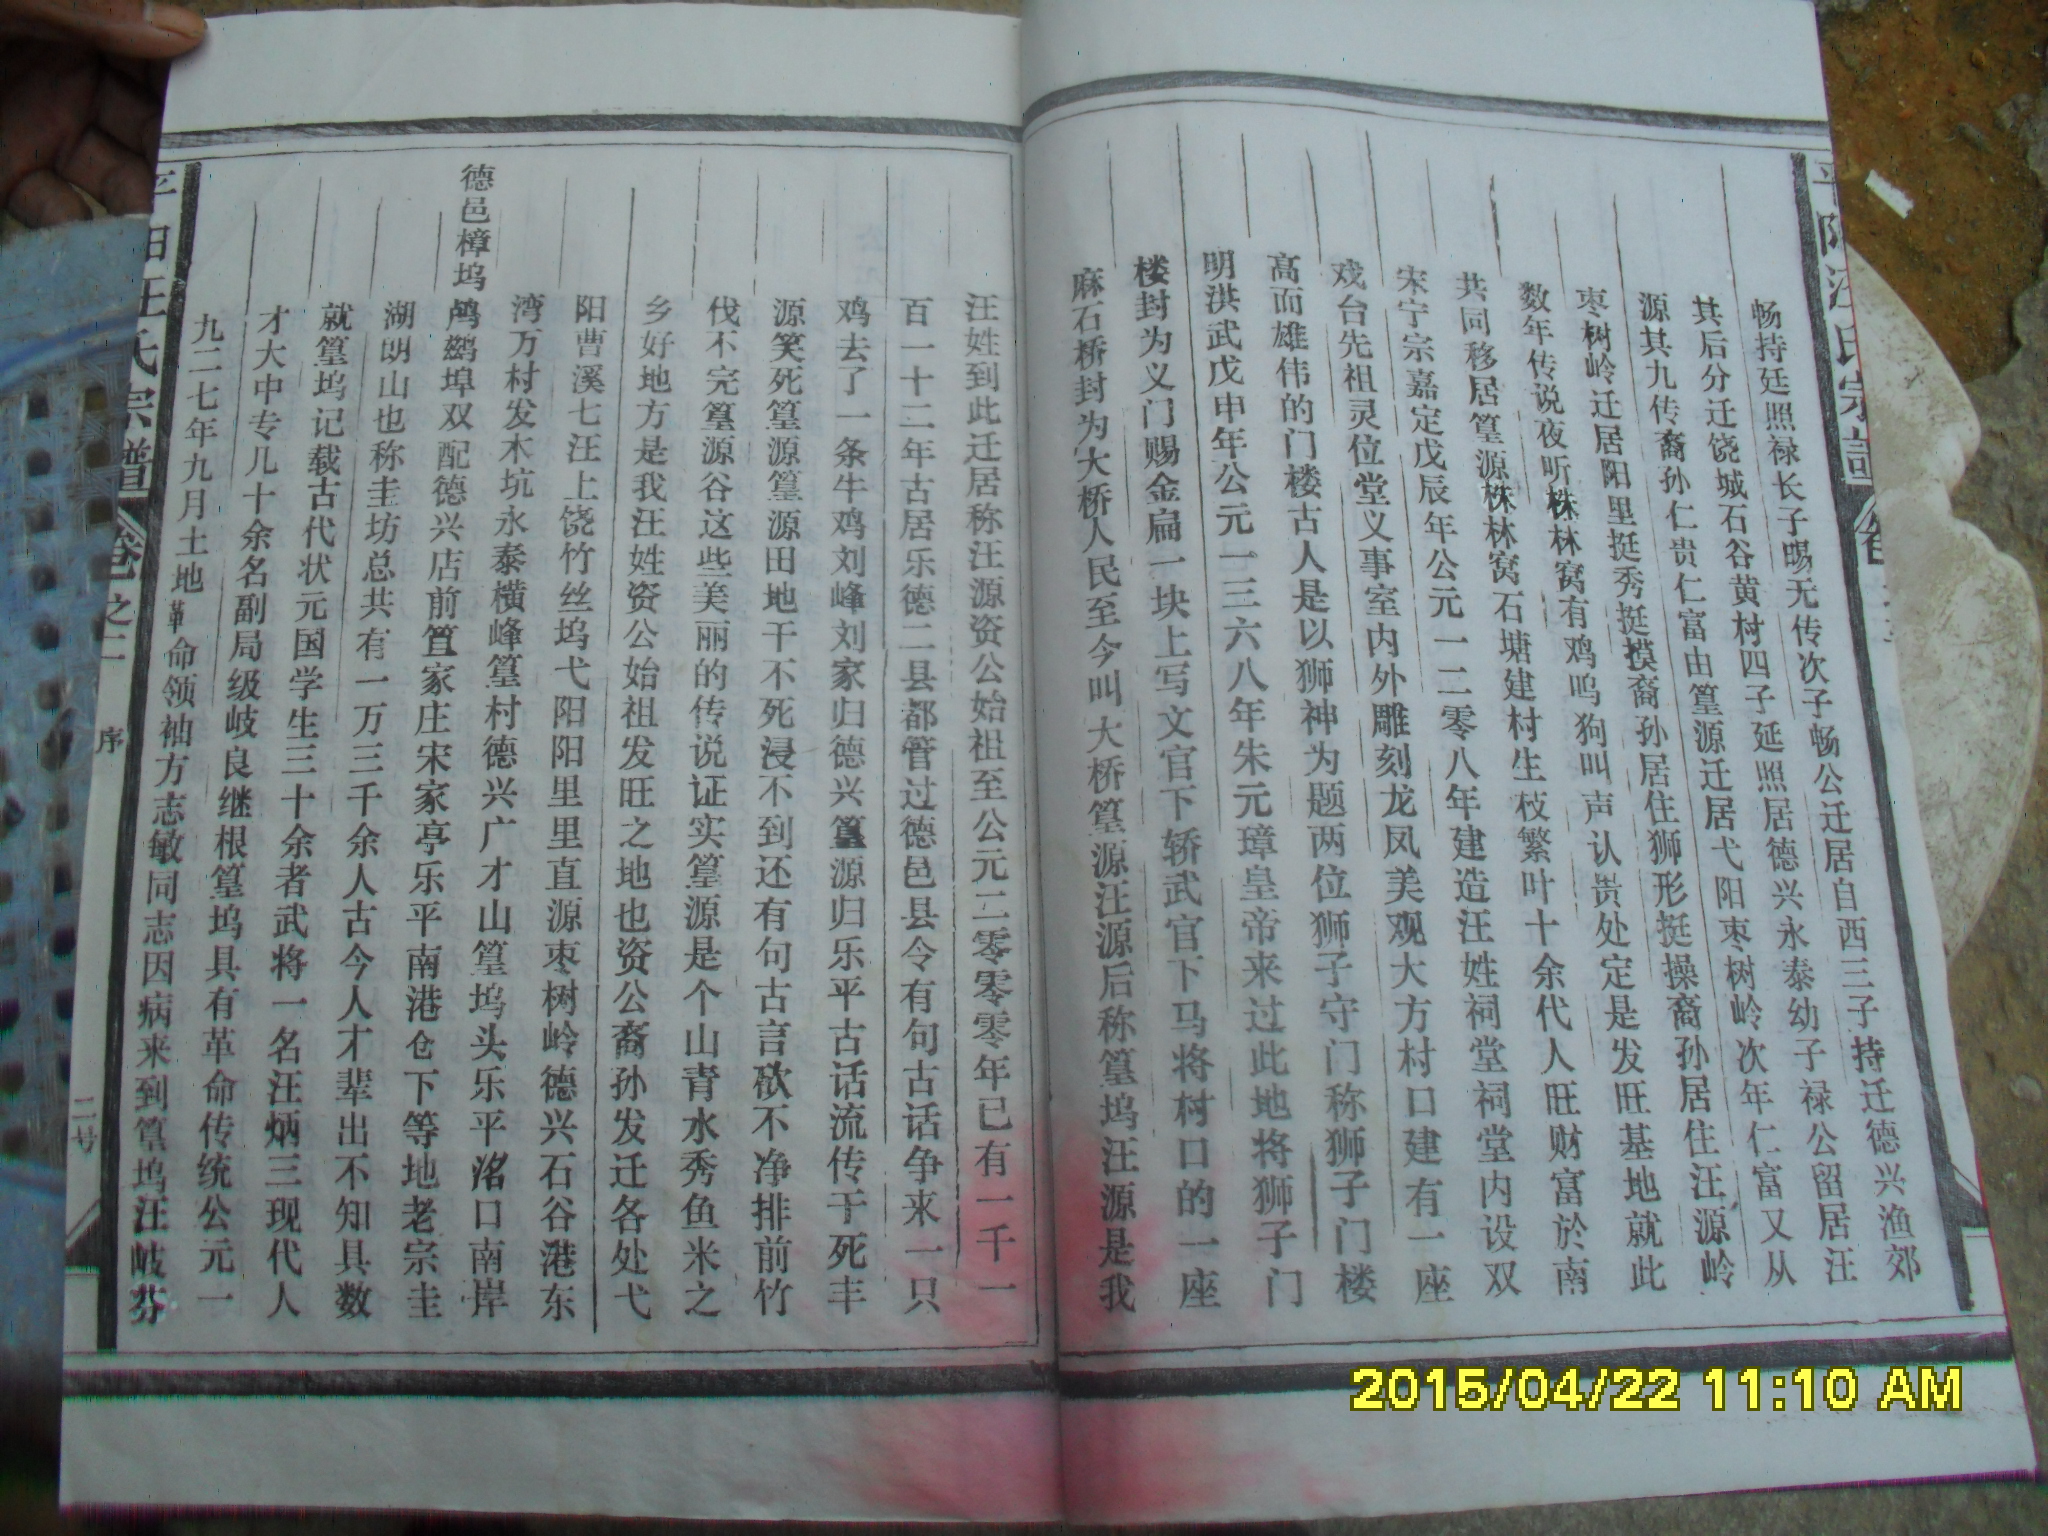 平阳汪氏宗谱
畅持廷照禄长子赐无传次子畅公迁居自西三子持迁德兴渔郊
其后分迁饶城石谷黄村四子延照居德兴永泰幼子禄公留居汪
源其九传裔孙仁贵仁富由篁源迁居弋阳枣树岭次年仁富又从
枣树岭迁居阳里挺秀挺摸裔孙居住狮形挺操裔孙居住汪源岭
数年传说夜听株林窝有鸡鸣狗叫声认贵处定是发旺基地就此
共同移居篁源株林窝石塘建村生枝繁叶十余代人旺财富於南
宋宁宗嘉定戊辰年公元一二零八年建造汪姓祠堂祠堂内设双
戏台先祖灵位堂义事室内外雕刻龙凤美观大方村口建有一座
高而雄伟的门楼古人是以狮神为题两位狮子守门称狮子门楼
明洪武戊申年公元一三六八年朱元璋皇帝来过此地将狮子门
楼封为义门赐金扁一块上写文官下轿武官下马将村口的一座
麻石桥封为大桥人民至今叫大桥篁源汪源后称篁坞汪源是我
汪姓到此迁居称汪源资公始祖至公元二零零零年已有一千一
百一十二年古居乐德二县都管过德邑县今有句古话争来一只
鸡去了一条牛鸡刘峰刘家归德兴篁源归乐平古话流传干死丰
源笑死篁源篁源田地干不死浸不到还有句古言砍不净排前竹
伐不完篁源谷这些美丽的传说证实篁源是个山青水秀鱼米之
乡好地方是我汪姓资公始祖发旺之地也资公裔孙发迁各处弋
阳曹溪七汪上饶竹丝坞弋阳阳里里直源枣树岭德兴石谷港东
湾万村发木坑永泰横峰篁村德兴广才山篁坞头乐平洺口南岸
德邑樟坞鸬鹚埠双配德兴店前篁家庄宋家亭乐平南港仓下等地老宗圭
湖明山也称圭坊总共有一万三千余人古今人才辈出不知具数
就篁坞记载古代状元国学生三十余者武将一名汪炳三现代人
才大中专几十余名副局级岐良继根篁坞具有革命传统公元一
九二七年九月土地革命领袖方志敏同志因病来到篁坞汪岐芬
平阳汪氏宗谱 卷之二 序 二号
2015/04/22 11:10 AM